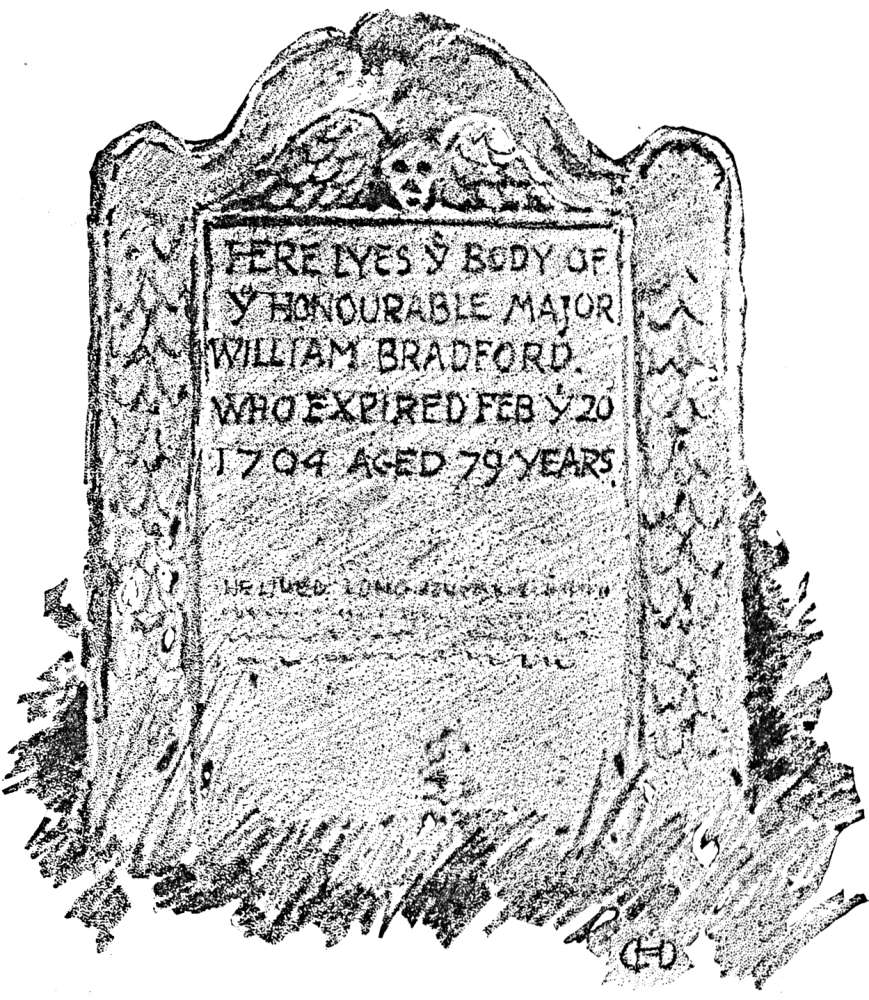 HERE LYES Yᵉ BODY OF
Yᵉ HONOURABLE MAJOR
WILLIAM BRADFORD.
WHO EXPIRED FEB Yᵉ 20
1704 AGED 79 YEARS
HE LIVED LONG